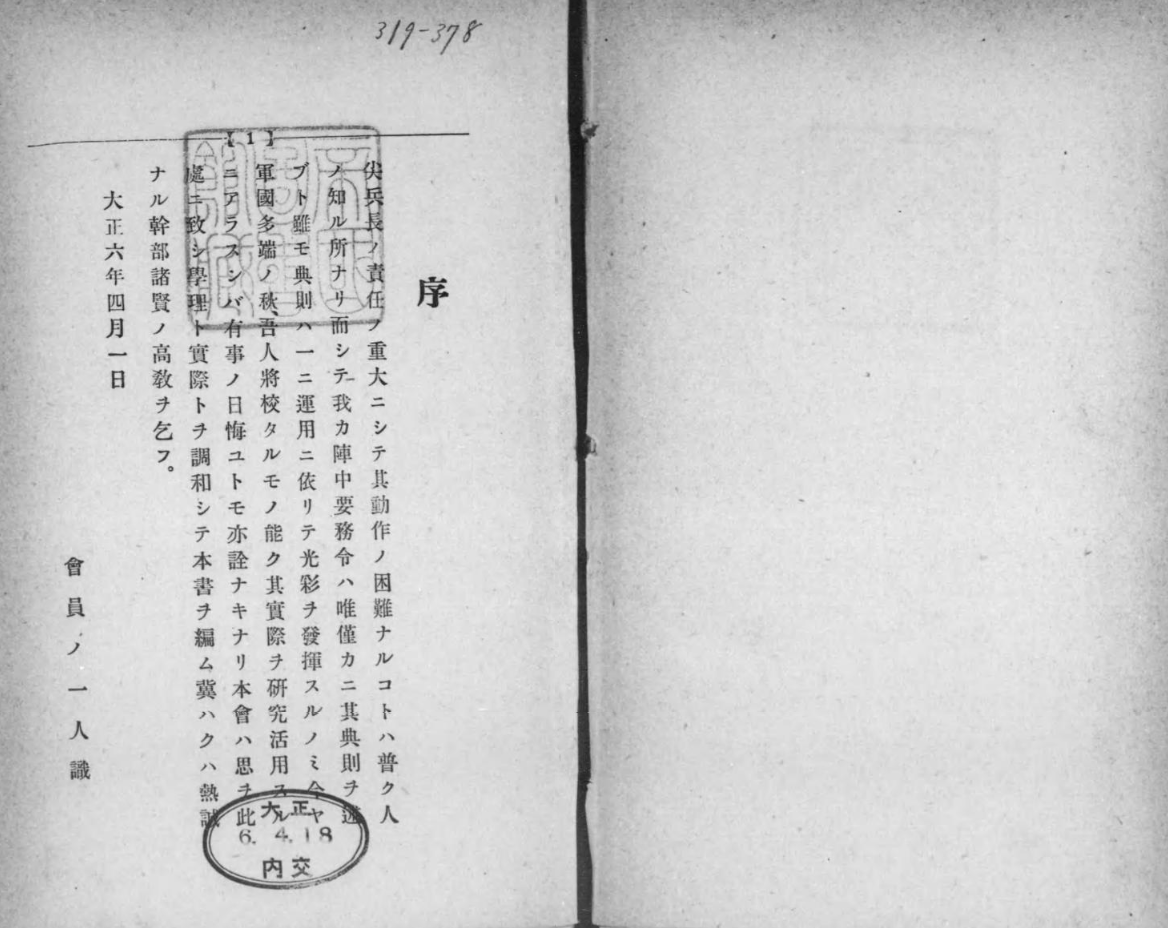 319-378
【1】
序
尖兵長ノ責任ノ重大ニシテ其動作ノ困難ナルコトハ普ク人
ノ知ル所ナリ而シテ我カ陣中要務令ハ唯僅カニ其典則ヲ述
ブト雖モ典則ハ一ニ運用ニ依リテ光彩ヲ發揮スルノミ今ヤ
軍國多端ノ秋、吾人將校タルモノ能ク其實際ヲ研究活用スル
ニアラスンバ有事ノ日悔ユトモ亦詮ナキナリ本會ハ思ヲ此
處ニ致シ學理ト實際トヲ調和シテ本書ヲ編ム冀ハクハ熱誠
ナル幹部諸賢ノ高敎ヲ乞フ。
大正六年四月一日
會員ノ一人識
帝國圖書館藏
大正
6. 4. 18
内交